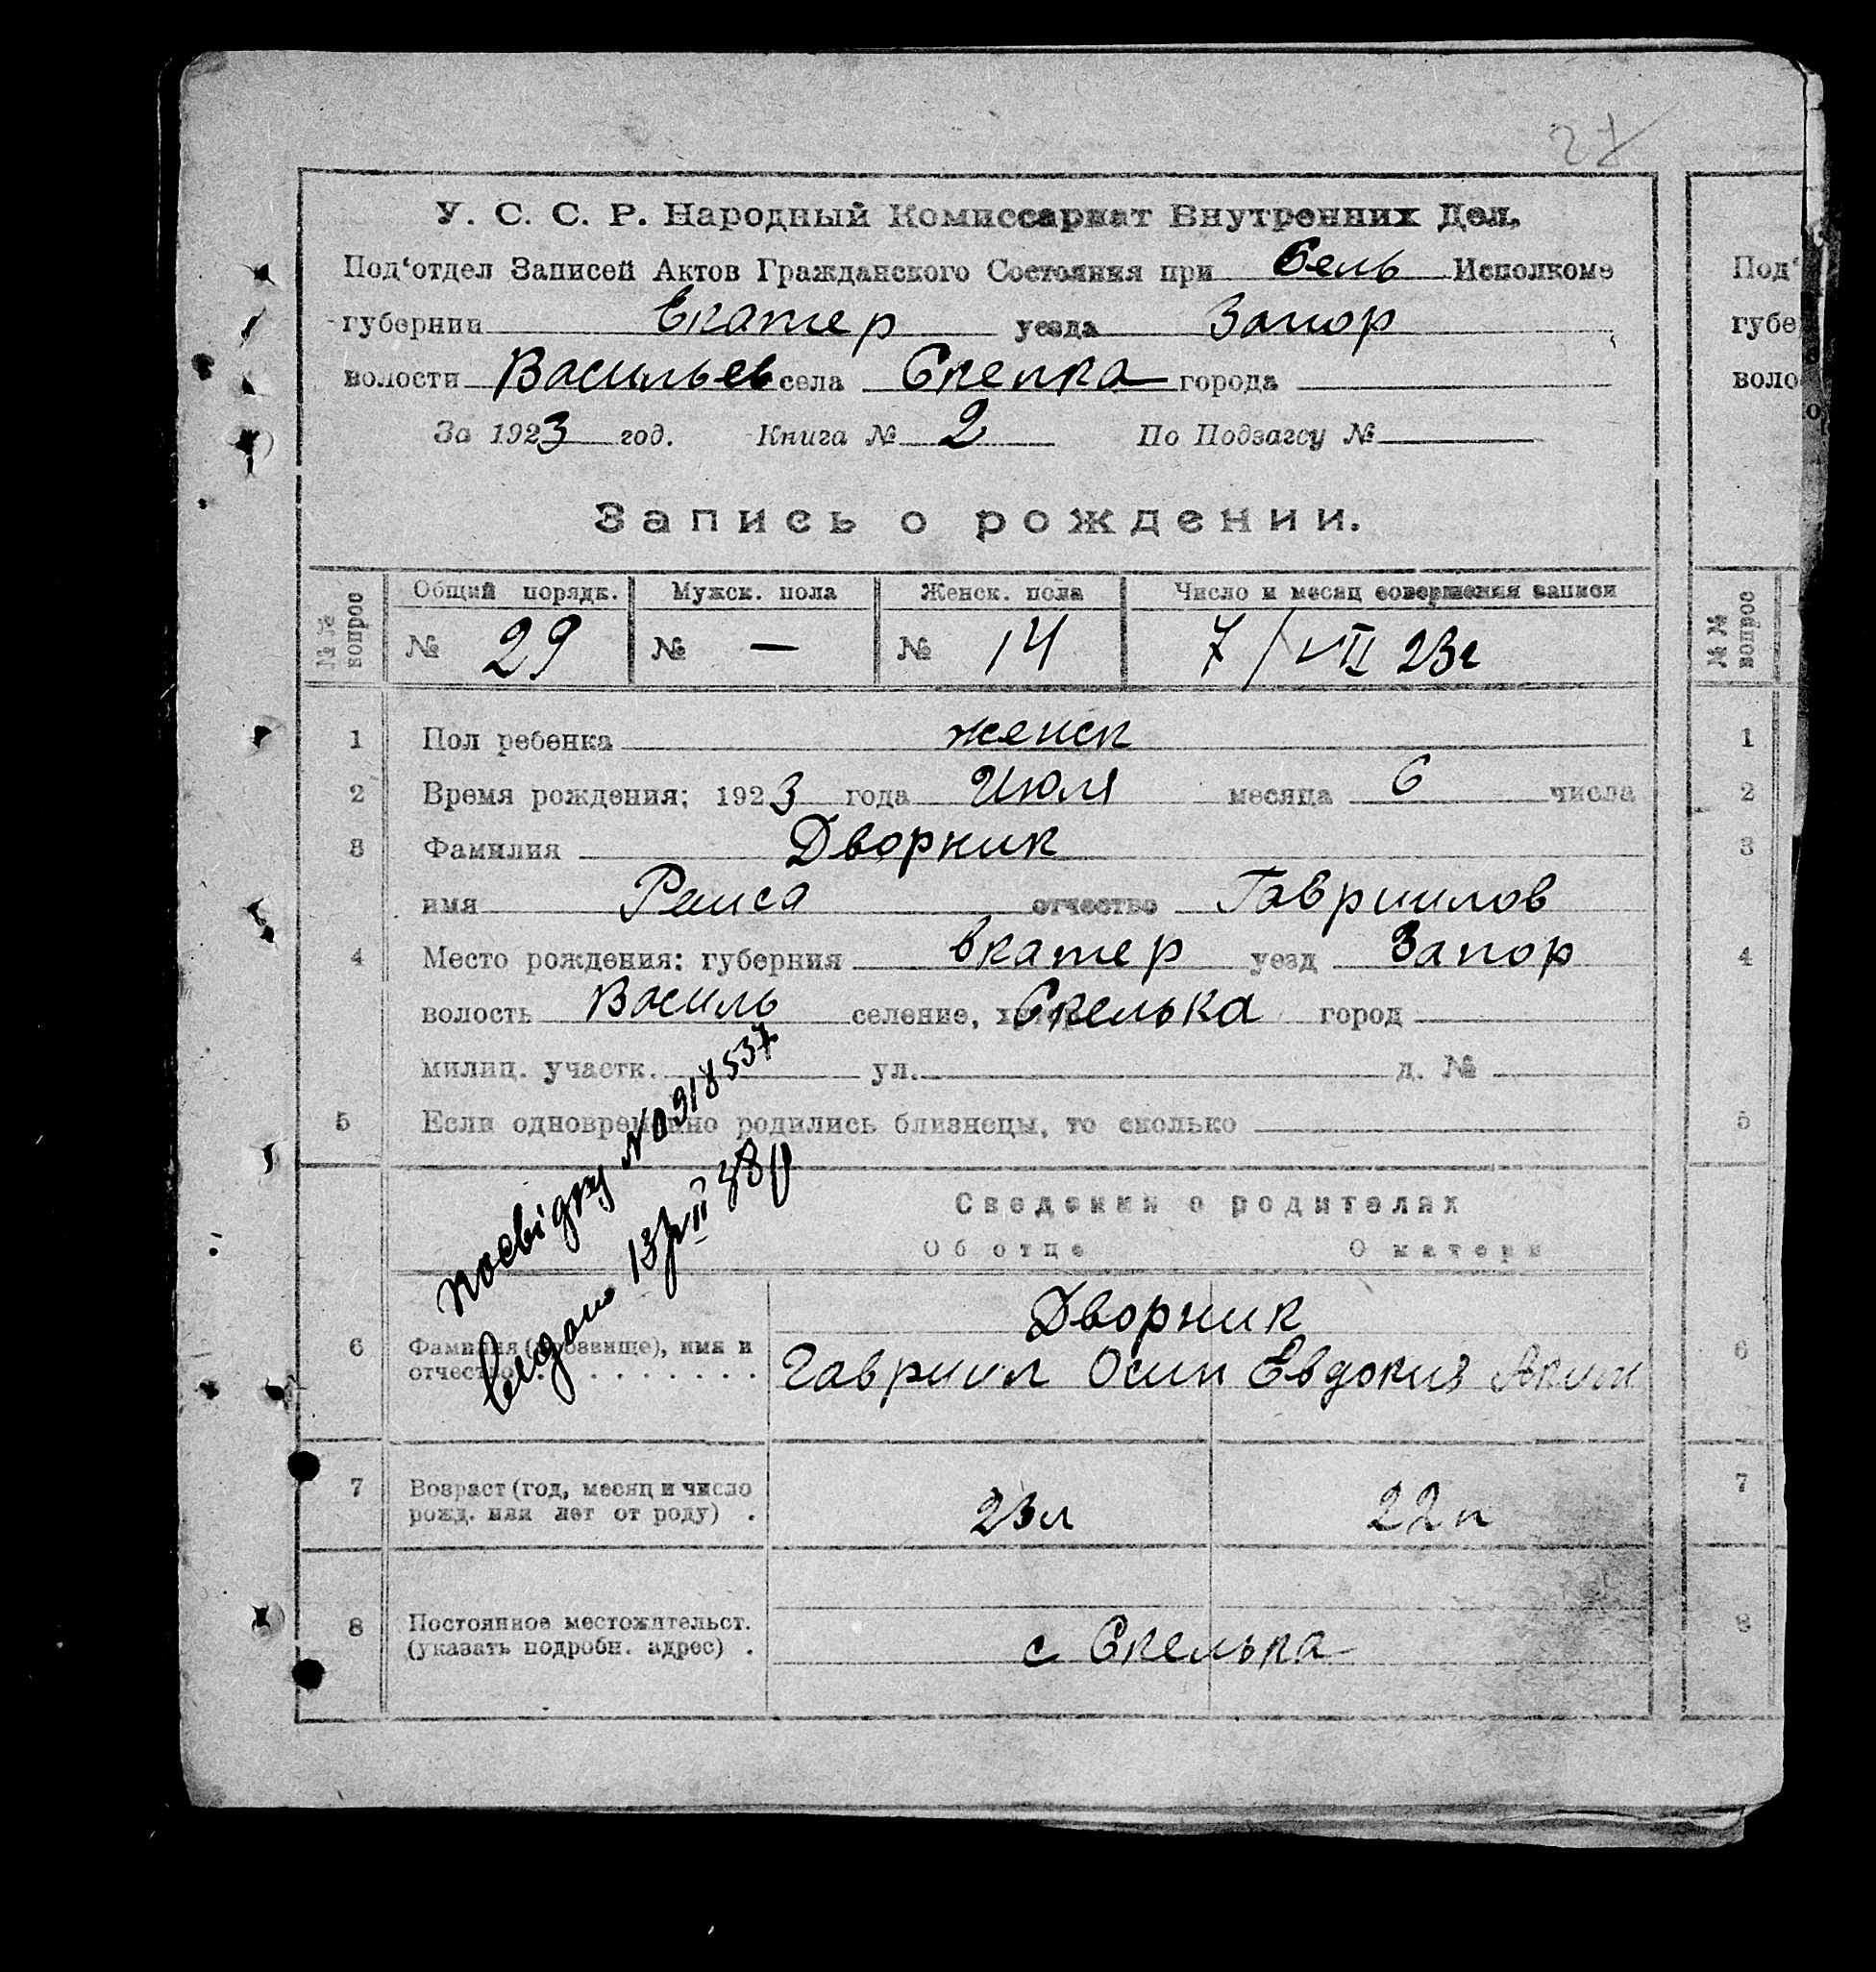 27
У. С. С. Р. Народный Комиссариат Внутренних Дел.
Под‘отдел Записей Актов Гражданского Состояния при Сель Исполкоме
губернии Екатер уезда Запор
волости Васильев села Скелка города
За 1923 год. Книга № 2 По Подзагсу №
Запись о рождении.
№№ вопрос Общий порядк. Мужск. пола Женск. пола Число и месяц совершения записи
№ 29 № — № 14 7/VII 23г
1 Пол ребенка женск
2 Время рождения: 1923 года Июля месяца 6 числа
3 Фамилия Дворник
имя Раиса отчество Гавриилов
4 Место рождения: губерния Екатер уезд Запор
волость Василь селение, Скелька город
милиц. участк. ул. д. №
5 Если одновременно родились близнецы, то сколько
Посвідку № 0918537
видано 13/VII 38р
Сведения о родителях
Об отце О матери
Дворник
6 Фамилия (прозвище), имя и
отчество . . . . . . . . Гавриил Осип Евдокия Аким
7 Возраст (год, месяц и число
рожд. или лет от роду) . 23л 22л
8 Постоянное местожительст.
(указать подробн. адрес) . с Скелька
Под‘
губе
воло
№№ вопрос
1
2
3
4
5
6
7
8